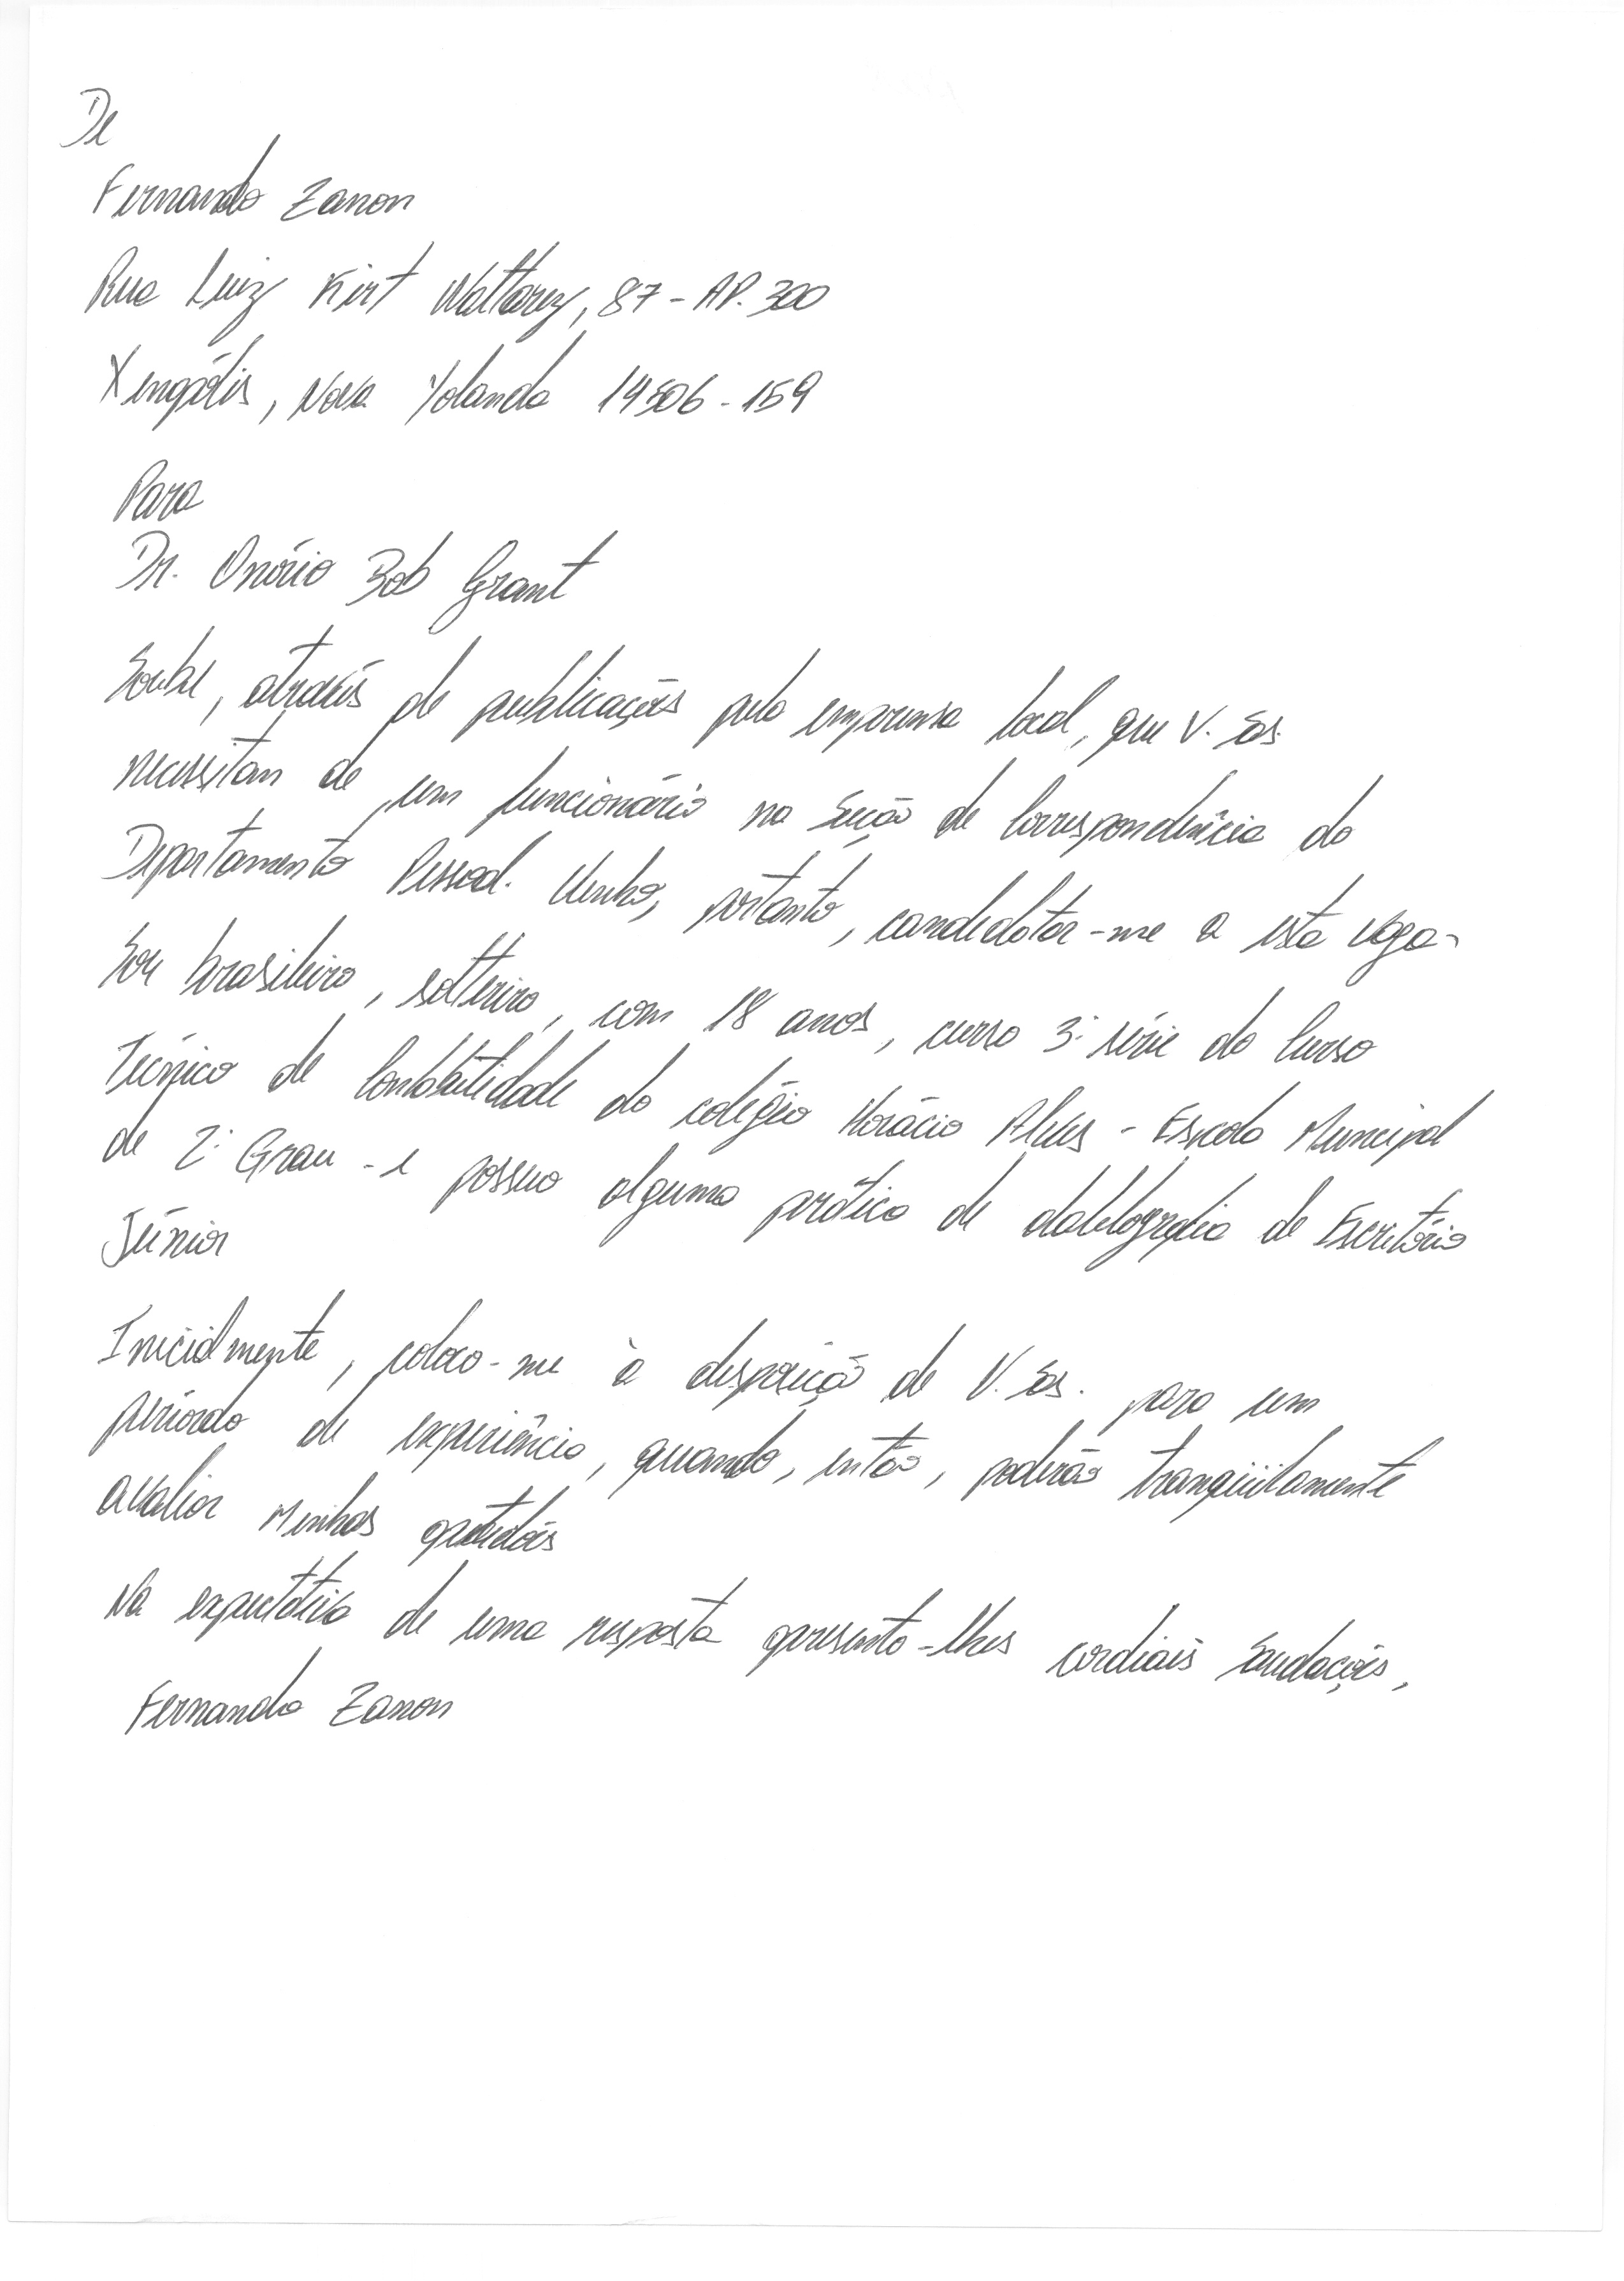 De
Fernando Zanon
Rua Luiz Kirt Wattarez, 87 - AP. 300
Xengólis, Nova Yolanda 14506-159
Para
Dr. Onório Bob Grant
Soube, através de publicações pela emprensa local, que V. Sas.
necessitan de um funcionário na Seção de Correspondência do
Departamento Pessoal. Venho, portanto, candidatar-me a esta vaga.
Sou brasileiro, solteriro, com 18 anos, curso 3ª série do Curso
Técnico de Contabilidade do colégio Horácio Alves - Escola Muncipal
de 2º Grau - e possuo alguma prática de de Escritório
Júnior
Inicialmente, coloco-me à disposição de V. Sas. para um
período de experiência, quando, então, poderão tranqüilamente
avaliar Minhas
Na expectativa de uma resposta apresento-lhes cordiais Saudações,
Fernando Zanon